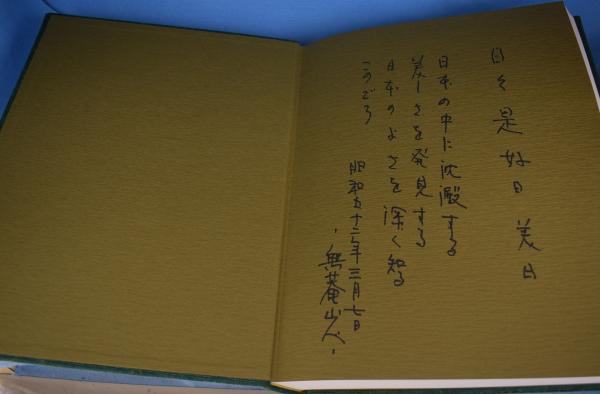 日々是好日 美日
日本の中に沈澱する
美しさを発見する
日本のよさを深く知る
このごろ
昭和五十二年三月七日
・無菴山人・